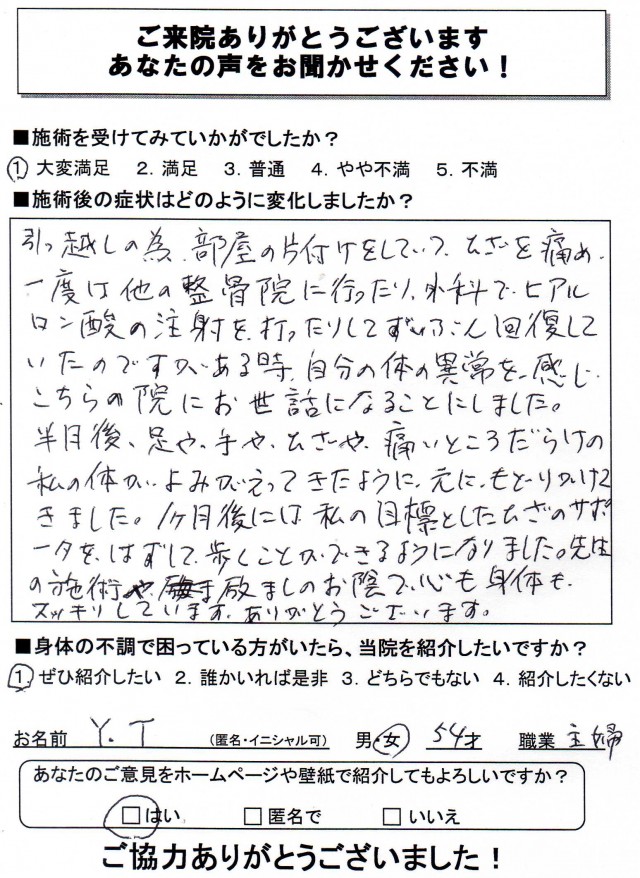 ご来院ありがとうございます
あなたの声をお聞かせください！
■施術を受けてみていかがでしたか？
1. 大変満足 2. 満足 3. 普通 4. やや不満 5. 不満
■施術後の症状はどのように変化しましたか？
引っ越しの為、部屋の片付けをしていて、ひざを痛め、
一度は他の整骨院に行ったり、外科で、ヒアル
ロン酸の注射を、打ったりしてずいぶん回復して
いたのですが、ある時、自分の体の異常を感じ、
こちらの院にお世話になることにしました。
半月後、足や、手や、ひざや、痛いところだらけの
私の体が、よみがえってきたように、元に、もどりかけて
きました。1ヶ月後には、私の目標としたひざのサポ
ータを、はずして、歩くことができるようになりました。先生
の施術や 励ましのお陰で、心も身体も、
スッキリしています。ありがとうございます。
■身体の不調で困っている方がいたら、当院を紹介したいですか？
1. ぜひ紹介したい 2. 誰かいれば是非 3. どちらでもない 4. 紹介したくない
お名前 Y.T (匿名・イニシャル可) 男・女 54才 職業 主婦
あなたのご意見をホームページや壁紙で紹介してもよろしいですか？
□はい □匿名で □いいえ
ご協力ありがとうございました！